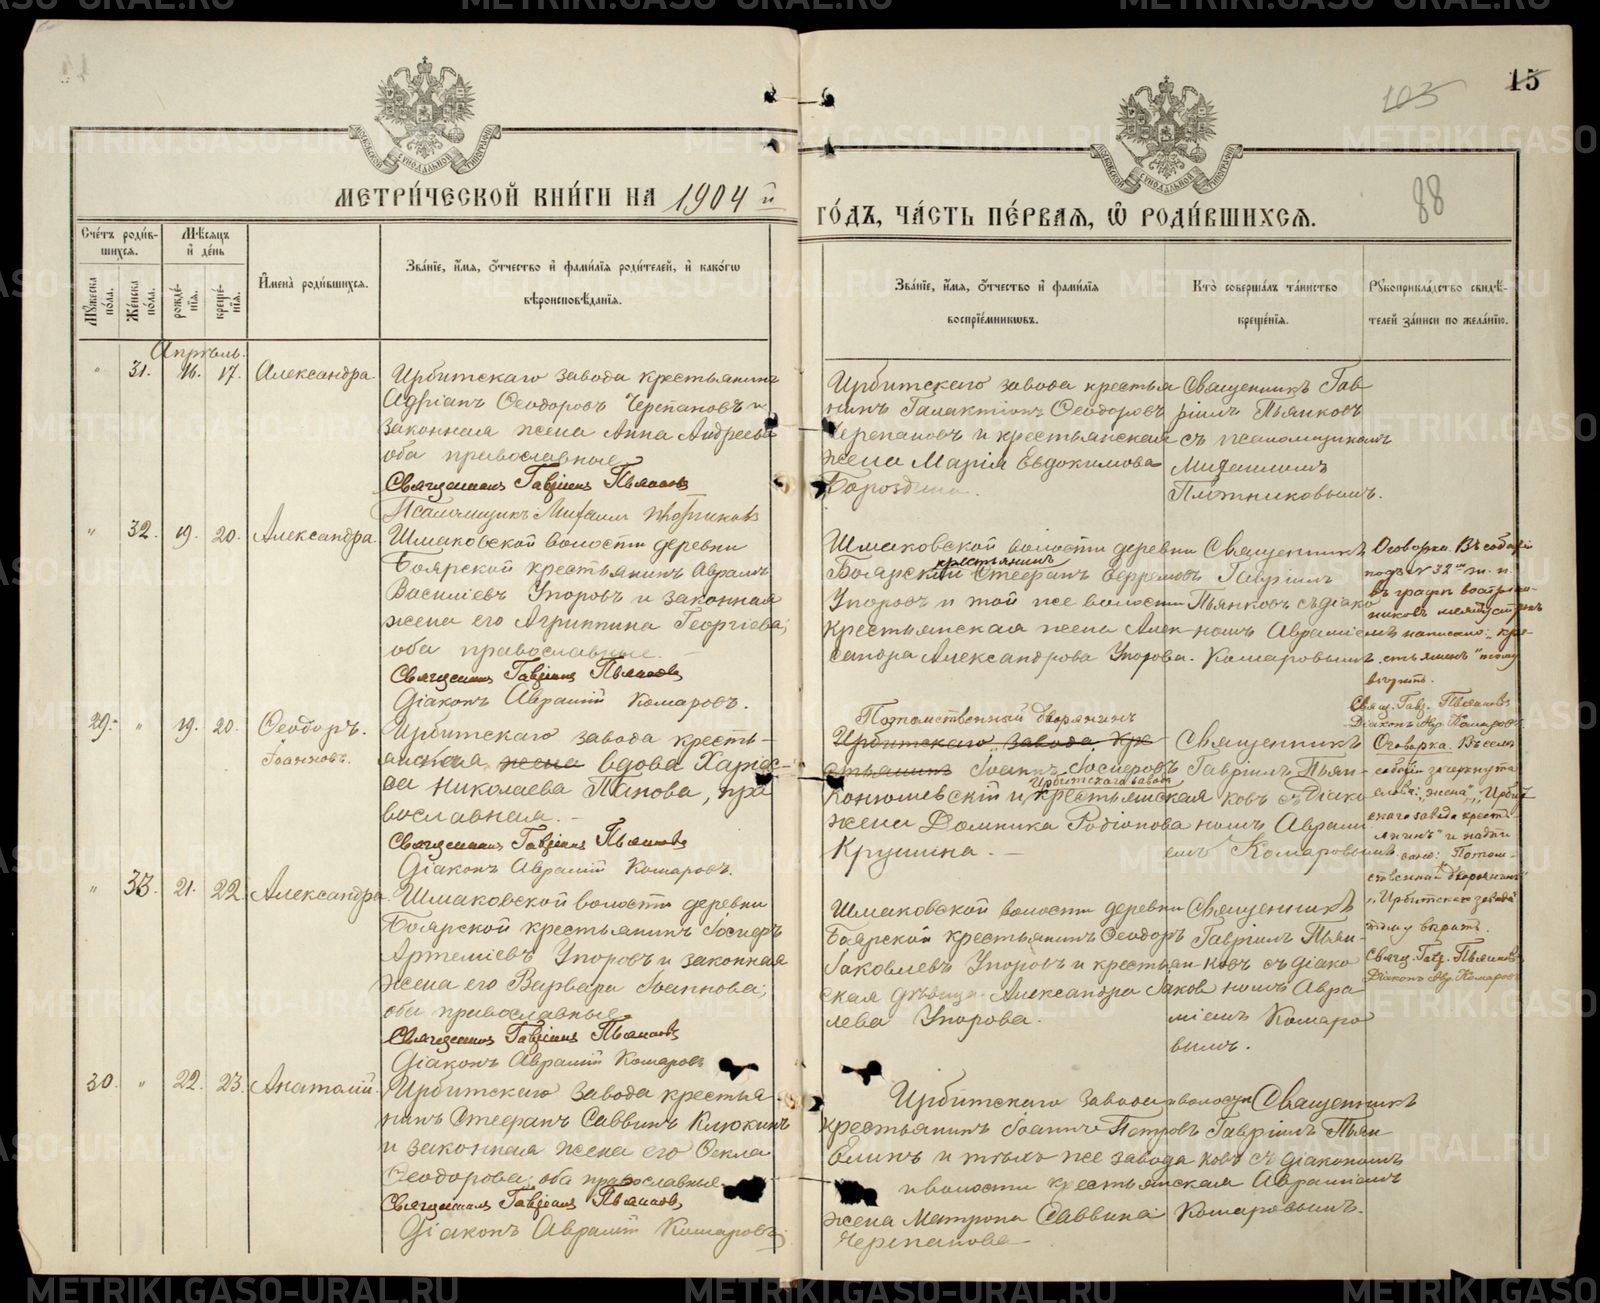 15
103
88
МОСКОВСКОЙ СѴНОДАЛЬНОЙ ТИПОГРАФІИ
МОСКОВСКОЙ СѴНОДАЛЬНОЙ ТИПОГРАФІИ
МЕТРИ́ЧЕСКОЙ КНИ́ГИ НА 1904 й
ГО́ДЪ, ЧА́СТЬ ПЕ́РВАЯ, Ѡ҆ РОДИ́ВШИХСЯ.
Сче́тъ роди́в-
шихся.
Мѣ́сяцъ
и҆ де́нь
Му́жеска по́ла.
Же́нска по́ла.
рожде́-нїѧ.
креще́-нїѧ.
И҆мена̀ роди́вшихся.
Зва́нїе, и҆́мѧ, ѻ҆́тчество и҆ фами́лїѧ роди́телей, и҆ како́гѡ
вѣроисповѣ́данїѧ.
Зва́нїе, и҆́мѧ, ѻ҆́тчество и҆ фами́лїѧ
воспрїе́мникѡвъ.
Кто̀ соверша́лъ та́инство
креще́нїѧ.
Рукоприкла́дство свидѣ́-
телей за́писи по жела́нїю.
Апрѣль.
" 31. 16. 17. Александра
Ирбитскаго завода крестьянинъ
Адріанъ Ѳеодоровъ Черепановъ и
законная жена Анна Андреева
оба православные
Священникъ Гавріилъ Пьянковъ
Псаломщикъ Михаилъ Плотниковъ
Ирбитскаго завода крестья
нинъ Галактіонъ Ѳеодоровъ
Черепановъ и крестьянская
жена Марія Евдокимова
Бороздина.
Священникъ Гав-
ріилъ Пьянковъ
съ псаломщикомъ
Михаиломъ
Плотниковымъ.
" 32. 19. 20. Александра
Шмаковской волости деревни
Боярской крестьянинъ Авраамъ
Василіевъ Упоровъ и законная
жена его Агриппина Георгіева;
оба православные.
Священникъ Гавріилъ Пьянковъ
Діаконъ Авраамій Комаровъ.
Шмаковской волости деревни
крестьянинъ
Боярской Стефанъ Ефремовъ
Упоровъ и той же волости
крестьянская жена Алек-
сандра Александрова Упорова.
Священникъ
Гавріилъ
Пьянковъ съ діако
номъ Авраміемъ
Комаровымъ.
Оговорка. Въ событіи
подъ № 32 ж. п.
въ графѣ воспріем-
никовъ между строкъ
написано: "кре-
стьянинъ" тому
вѣрить.
Свящ. Гавр. Пьянковъ
Діаконъ Авр. Комаровъ
29. " 19. 20. Ѳеодоръ.
Іоанновъ.
Ирбитскаго завода кресть-
янская жена вдова Харис-
са Николаева Панова, пра
вославная.
Священникъ Гавріилъ Пьянковъ
Діаконъ Авраамій Комаровъ.
Потомственный дворянинъ
Ирбитскаго завода кре
стьянинъ Іоаннъ Іосифовъ
Ирбитскаго завода
Конюшевскій и крестьянская
жена Домника Родіонова
Крушина.
Священникъ
Гавріилъ Пьян-
ковъ съ діако
номъ Аврамі
емъ Комаровымъ
Оговорка. Въ семъ
событіи зачеркнута
слова: "жена", "Ирбит
скаго завода крест
янинъ" и надпи
сано: Потом-
ственный дворянинъ
"Ирбитскаго завода"
тому вѣрить.
Свящ. Гавр. Пьянковъ
Діаконъ Авр. Комаровъ
" 33. 21. 22. Александра
Шмаковской волости деревни
Боярской крестьянинъ Іосифъ
Артеміевъ Упоровъ и законная
жена его Варвара Іоаннова;
оба православные
Священникъ Гавріилъ Пьянковъ
Діаконъ Авраамій Комаровъ
Шмаковской волости деревни
Боярской крестьянинъ Ѳеодоръ
Іаковлевъ Упоровъ и крестьян-
ская дѣвица Александра Іаков
лева Упорова.
Священникъ
Гавріилъ Пьян-
ковъ съ діако
номъ Авра-
міемъ Комаро
вымъ.
30. " 22. 23. Анатолій.
Ирбитскаго завода крестья
нинъ Стефанъ Саввинъ Клюкинъ
и законная жена его Ѳекла
Ѳеодорова; оба православные
Священникъ Гавріилъ Пьянковъ
Діаконъ Авраамій Комаровъ.
Ирбитскаго завода и волости
крестьянинъ Іоаннъ Петровъ
Елинъ и тѣхъ же завода
и волости крестьянская
жена Матрона Саввина
Черепанова
Священникъ
Гавріилъ Пьян
ковъ съ діакономъ
Авраміемъ
Комаровымъ.
METRIKI.GASO-URAL.RU